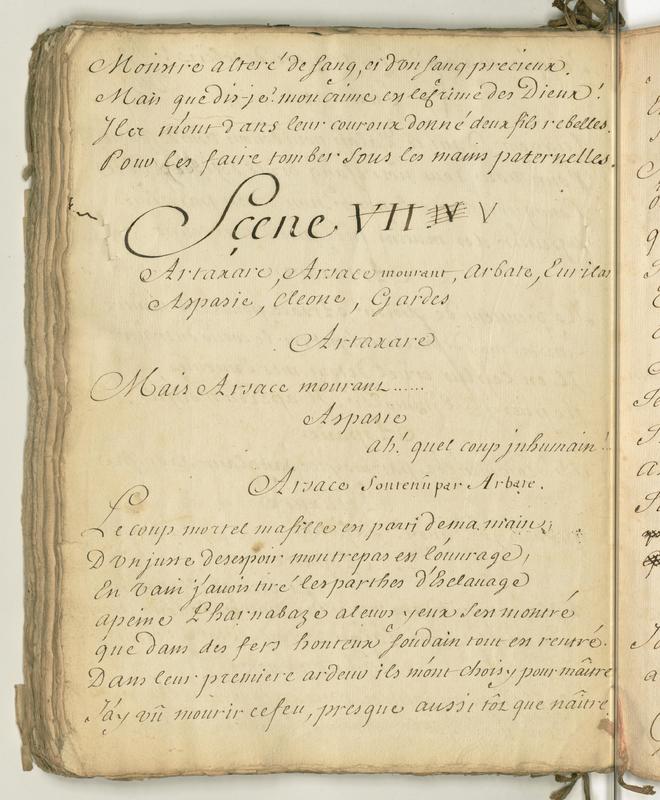 Monstre alteré de sang, et d'un sang precieux.
Mais que dis-je? mon crime est le crime des Dieux!
Ils m'ont dans leur couroux donné deux fils rebelles.
Pour les faire tomber sous les mains paternelles.
Sçene VII IV V
Artaxare, Arsace mourant, Arbate, Eurilas
Aspasie, Cleone, Gardes
Artaxare
Mais Arsace mourant......
Aspasie
ah! quel coup jnhumain!
Arsace Soutenu par Arbate.
Le coup mortel ma fille est parti de ma main;
D'vn juste desespoir mon trepas est l'ouurage,
En vain j'auois tiré les parthes d'Esclauage
apeine Pharnabaze a leurs yeux s'est montré
que dans des fers honteux soudain tout est rentré.
Dans leur premiere ardeur ils m'ont choisy pour maître
J'ay vû mourir ce feu, presque aussi tôt que naître.